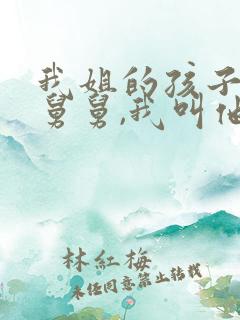 我姐的孩子
舅舅,我叫他
林红梅
未经同意禁止转载